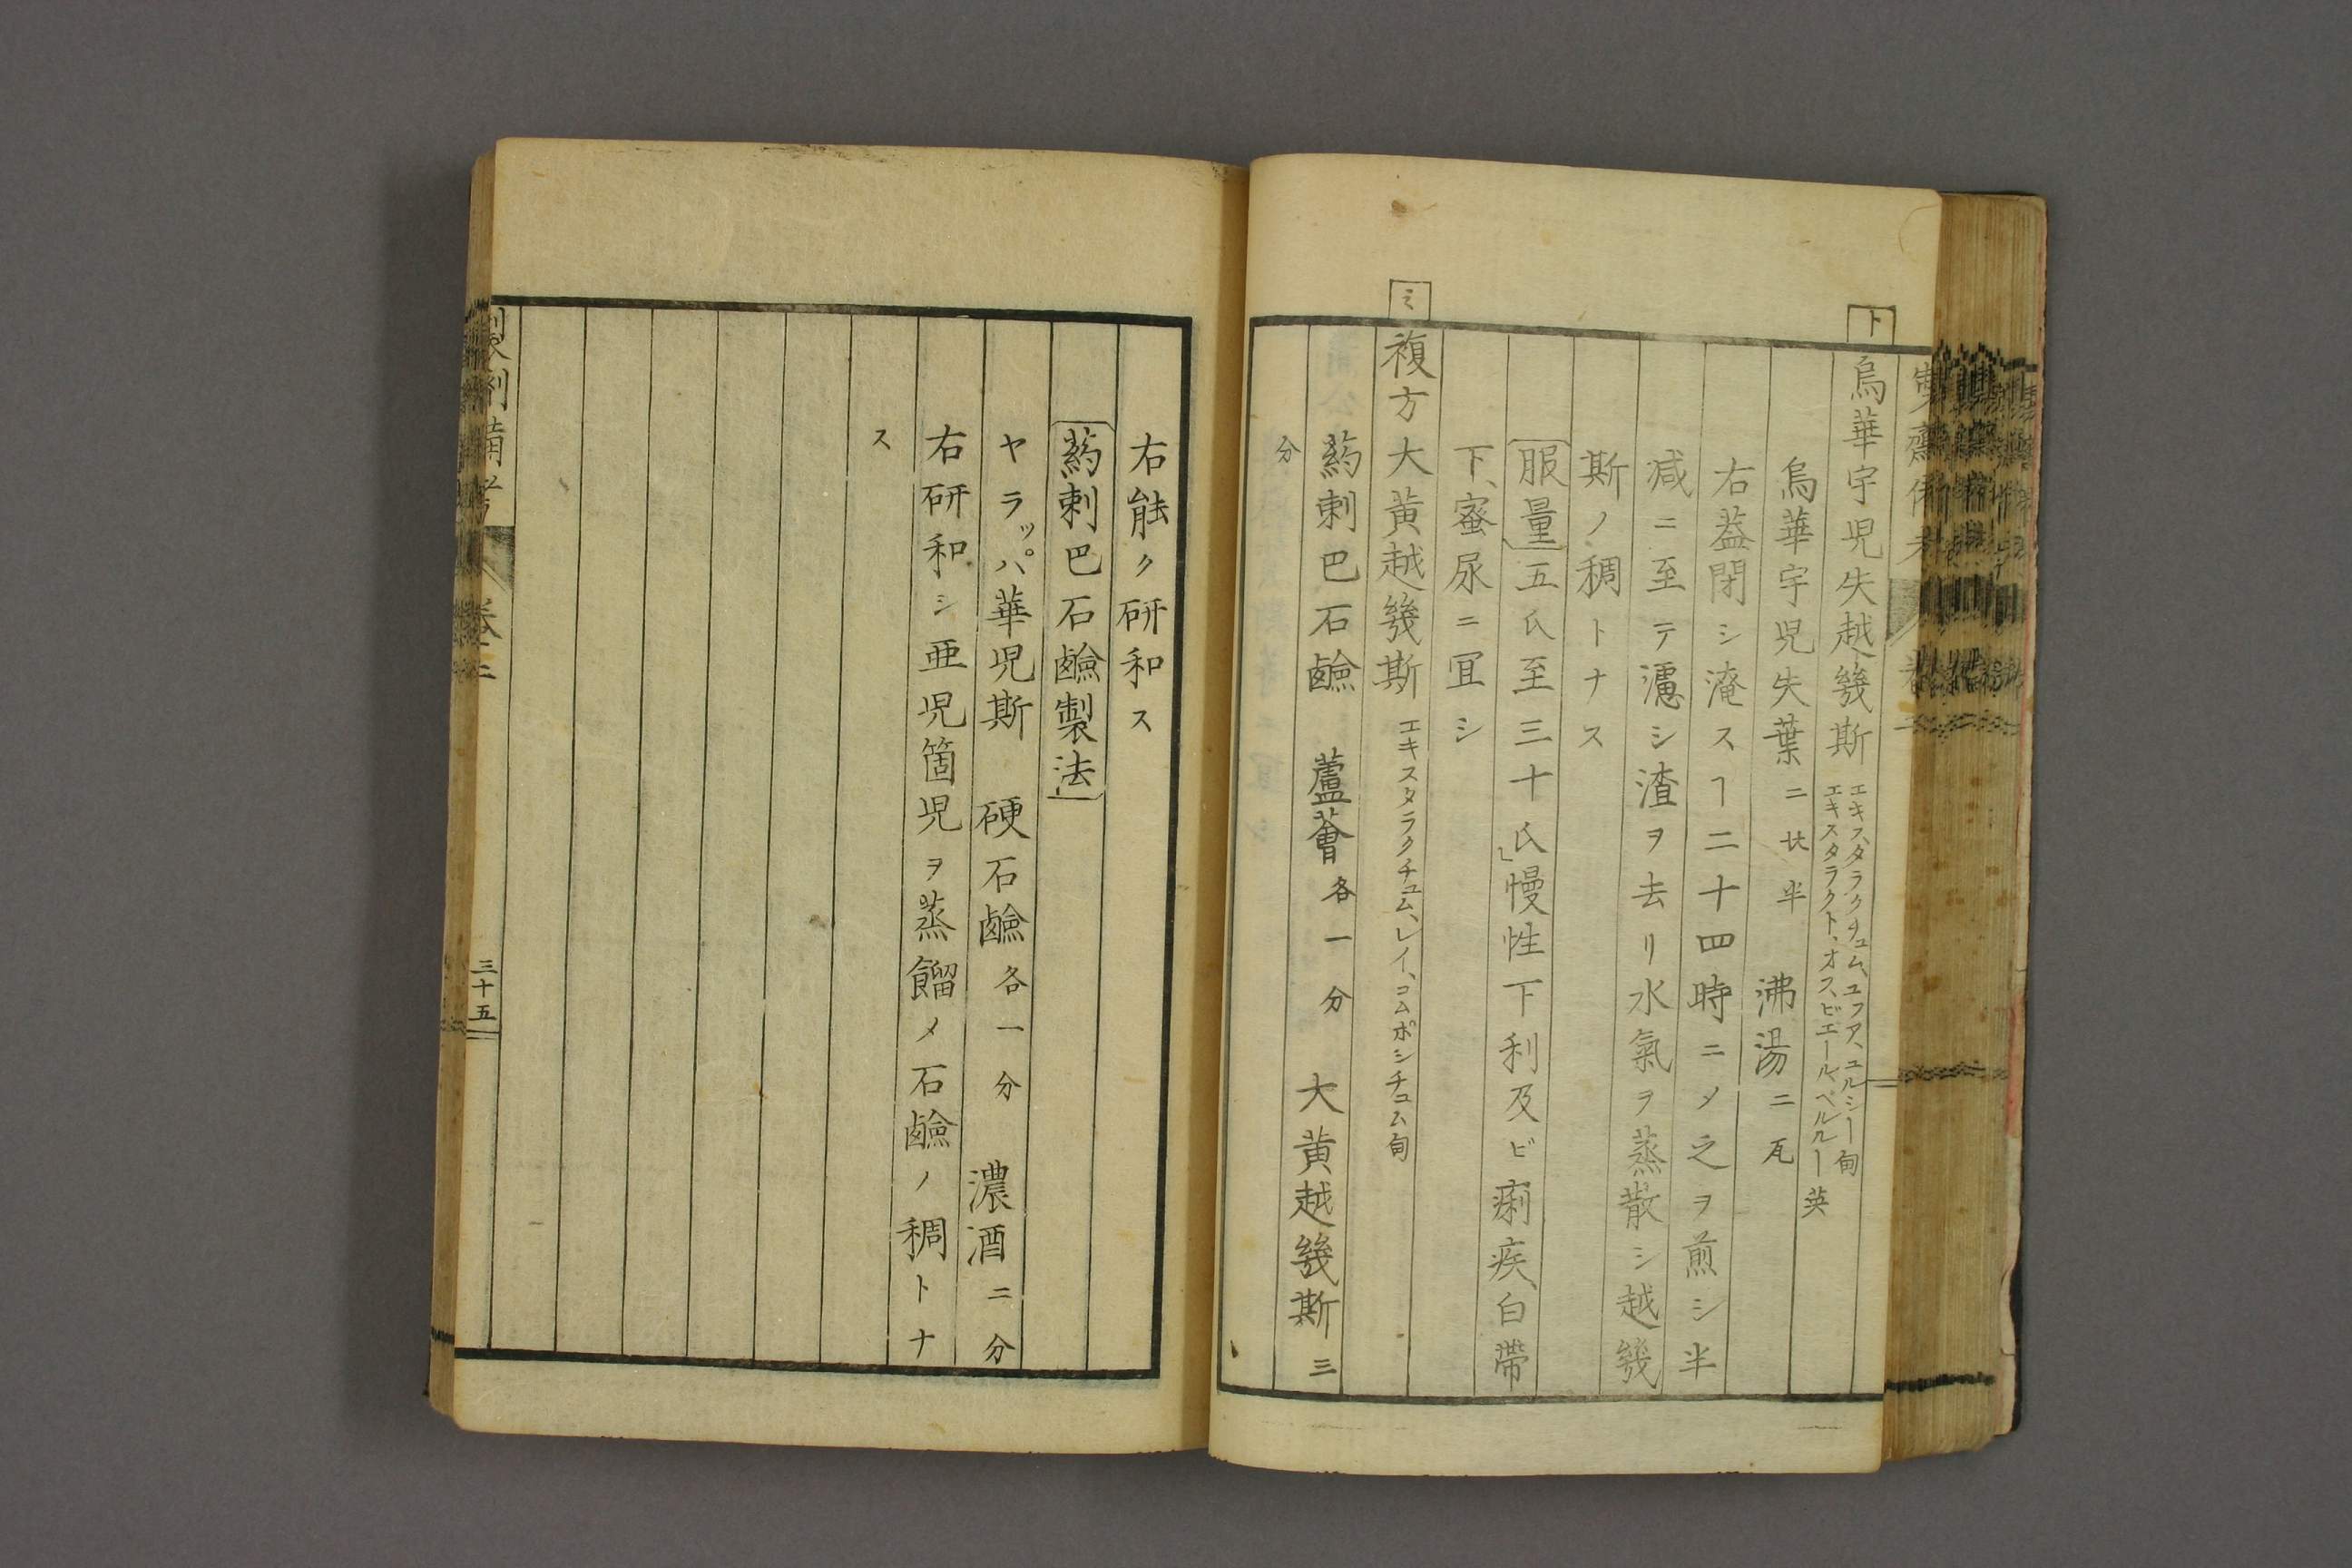 ト
烏華宇児失越幾斯 エキス、タラクチュム、ユフア、ユルシー 甸
エキスタラクト、オフ、ビエールベルルー 英
烏華宇児失葉 二 半 沸湯 二 瓦
右蓋閉シ淹スヿ二十四時ニ〆之ヲ煎シ半
减ニ至テ濾シ渣ヲ去リ水氣ヲ蒸散シ越幾
斯ノ稠トナス
服量 五氏至三十氏」慢性下利及ビ痢疾、白帶
下、蜜尿ニ冝シ
ミ
複方大黄越幾斯 エキスタラクチュム、レイ、コムポシチュム 甸
葯剌巴石鹼 蘆薈 各一分 大黄越幾斯 三
分
右能ク研和ス
葯剌巴石鹼製法
ヤラッパ華児斯 硬石鹼 各一分 濃酒 二分
右研和シ亜児箇児ヲ蒸餾〆石鹼ノ稠トナ
ス
製劑備考 卷二 三十五